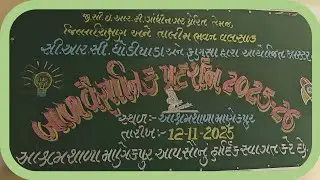 જી.સી.ઇ.આર.ટી. ગાંધીનગર પ્રેરિત તેમજ
જિલ્લા શિક્ષણ અને તાલીમ ભવન વલસાડ
સી.આર.સી. ધોડીયાડા અને ફણસા દ્વારા આયોજિત ક્લસ્ટર
બાળ વૈજ્ઞાનિક પ્રદર્શન ૨૦૨૫-૨૬
સ્થળ:- આશ્રમશાળા માણેકપુર
તારીખ:- 12-11-2025
આશ્રમશાળા માણેકપુર આપસૌનું હાર્દિક સ્વાગત કરે છે.